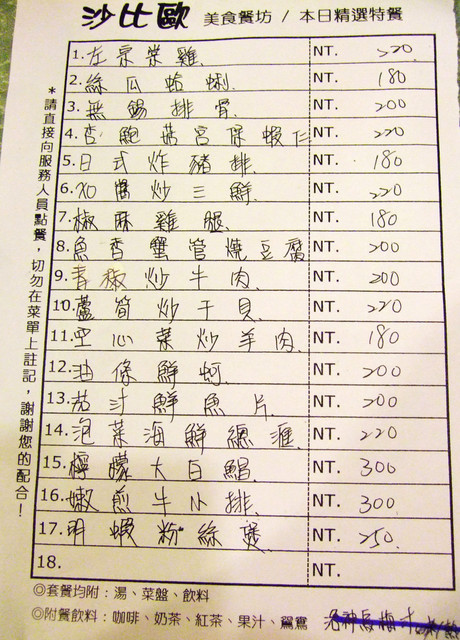 沙比歐 美食餐坊 / 本日精選特餐
1. 左宗棠雞 NT. 220
2. 絲瓜蛤蜊 NT. 180
3. 無錫排骨 NT. 200
4. 杏鮑菇宮保蝦仁 NT. 220
5. 日式炸豬排 NT. 180
6. XO醬炒三鮮 NT. 220
7. 椒麻雞腿 NT. 180
8. 魚香蟹管燒豆腐 NT. 200
9. 青椒炒牛肉 NT. 200
10. 蘆筍炒干貝 NT. 220
11. 空心菜炒羊肉 NT. 180
12. 油條鮮蚵 NT. 200
13. 茄汁鮮魚片 NT. 200
14. 泡菜海鮮總匯 NT. 220
15. 檸檬大白鯧 NT. 300
16. 嫩煎牛小排 NT. 300
17. 明蝦粉絲煲 NT. 250
18. NT.
*請直接向服務人員點餐，切勿在菜單上註記，謝謝您的配合！
◎套餐均附：湯、菜盤、飲料
◎附餐飲料：咖啡、奶茶、紅茶、果汁、鴛鴦
洛神烏梅汁